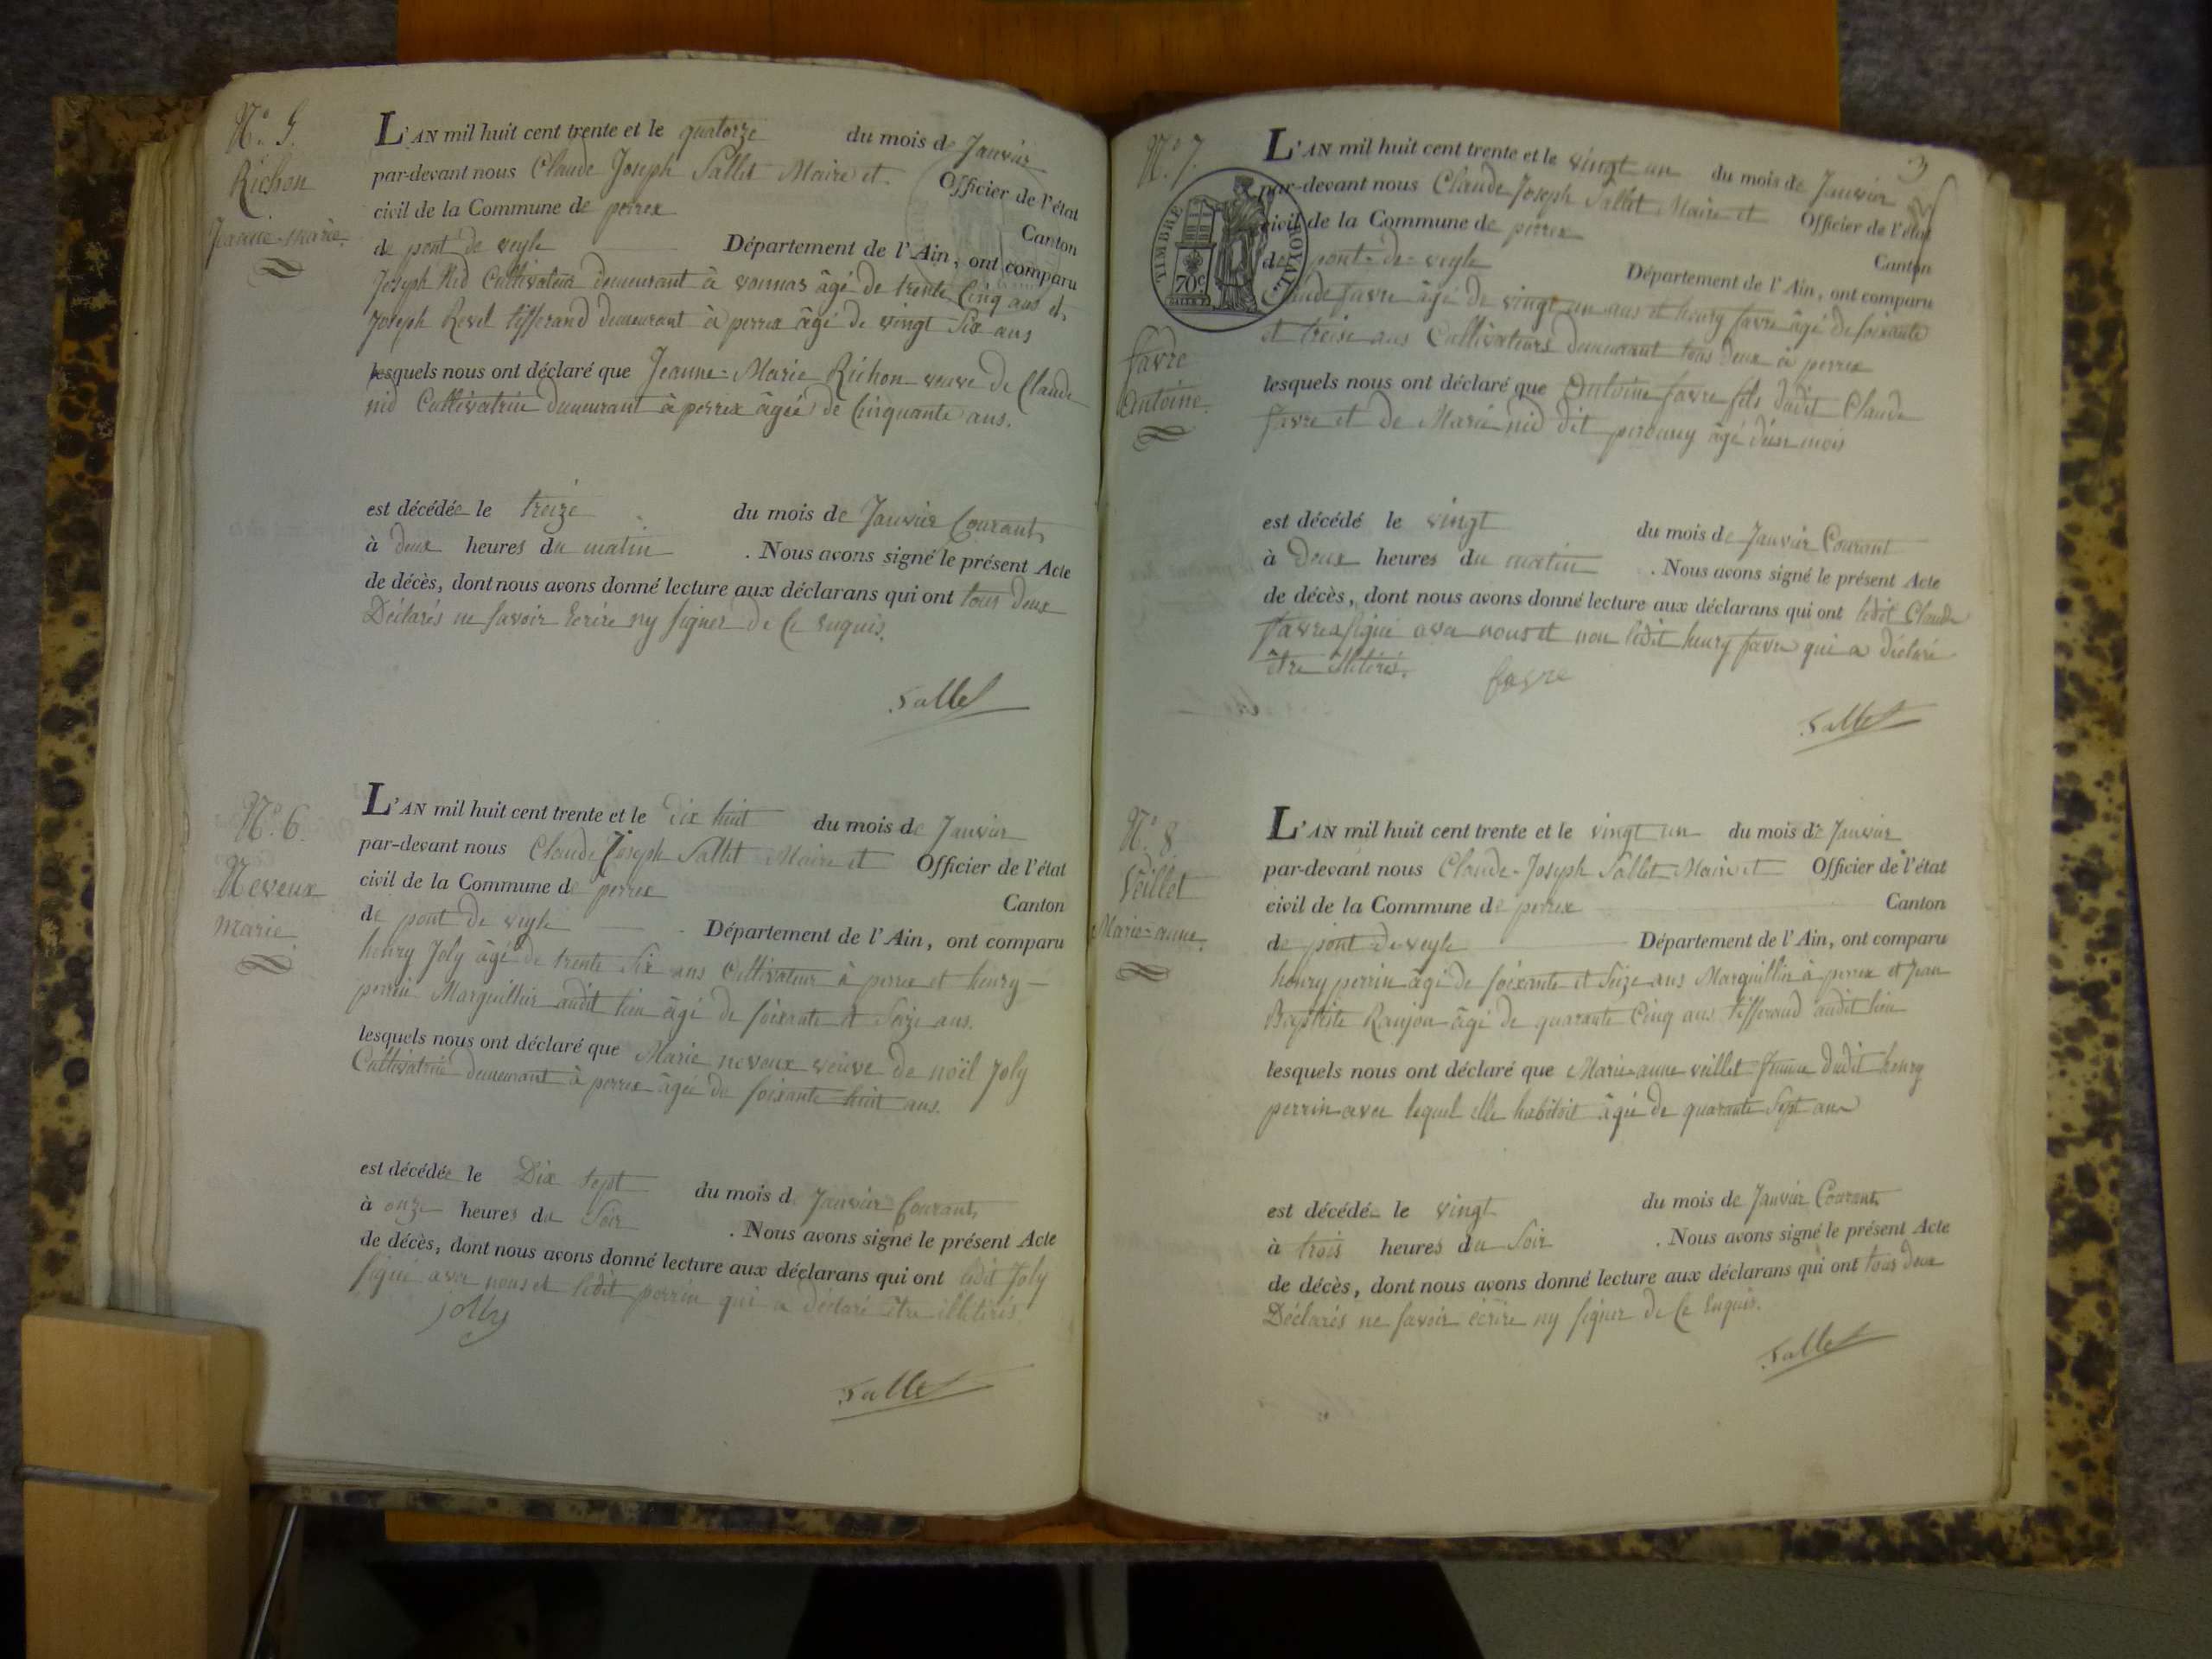 N.° 5.
Richon
Jeanne-marie.
L'AN mil huit cent trente et le quatorze du mois de Janvier
par-devant nous Claude Joseph Sallet Maire et Officier de l'état
civil de la Commune de perrex Canton
de pont de veyle Département de l'Ain, ont comparu
Joseph Nid Cultivateur demeurant à vonnas âgé de trente Cinq ans et
Joseph Revel tisserand demeurant à perrex âgé de vingt Six ans
lesquels nous ont déclaré que Jeanne-Marie Richon veuve de Claude
nid Cultivatrice demeurant à perrex âgée de Cinquante ans.
est décédée le treize du mois de Janvier Courant,
à deux heures du matin . Nous avons signé le présent Acte
de décès, dont nous avons donné lecture aux déclarans qui ont tous deux
Déclarés ne savoir Ecrire ny signer de Ce Enquis.
Sallet
N.° 6.
Neveux
marie.
L'AN mil huit cent trente et le dix huit du mois de Janvier
par-devant nous Claude Joseph Sallet Maire et Officier de l'état
civil de la Commune de perrex Canton
de pont de veyle Département de l'Ain, ont comparu
henry Joly âgé de trente Six ans Cultivateur à perrex et henry
perrin Marguillier audit lieu âgé de soixante et Seize ans.
lesquels nous ont déclaré que Marie neveux veuve de noël Joly
Cultivatrice demeurant à perrex âgée de soixante huit ans.
est décédée le Dix sept du mois d Janvier Courant,
à onze heures du Soir . Nous avons signé le présent Acte
de décès, dont nous avons donné lecture aux déclarans qui ont ledit Joly
signé avec nous et ledit perrin qui a déclaré être illitérés.
jolly
Sallet
3
N.° 7.
TIMBRE ROYAL.
70c
favre
Antoine.
L'AN mil huit cent trente et le vingt un du mois de Janvier
par-devant nous Claude Joseph Sallet Maire et Officier de l'état
civil de la Commune de perrex Canton
de pont-de-veyle Département de l'Ain, ont comparu
Claude favre âgé de vingt un ans et henry favre âgé de soixante
et treise ans Cultivateurs demeurant tous deux à perrex
lesquels nous ont déclaré que Antoine favre fils dudit Claude
favre et de Marie nid dit âgé d'un mois
est décédé le vingt du mois de Janvier Courant
à Deux heures du matin . Nous avons signé le présent Acte
de décès, dont nous avons donné lecture aux déclarans qui ont ledit Claude
favre signé avec nous et non ledit henry favre qui a déclaré
être illitérés.
favre
Sallet
N.° 8
Veillet
Marie-anne.
L'AN mil huit cent trente et le vingt un du mois de Janvier
par-devant nous Claude-Joseph Sallet Maire et Officier de l'état
civil de la Commune de perrex Canton
de pont de veyle Département de l'Ain, ont comparu
henry perrin âgé de soixante et Seize ans Marguillier à perrex et Jean
Baptiste Ranjon âgé de quarante Cinq ans tisserand audit lieu
lesquels nous ont déclaré que Marie-anne veillet femme dudit henry
perrin avec lequel elle habitoit âgée de quarante Sept ans
est décédé le vingt du mois de Janvier Courant,
à trois heures du Soir . Nous avons signé le présent Acte
de décès, dont nous avons donné lecture aux déclarans qui ont tous deux
Déclarés ne savoir écrire ny signer de Ce Enquis.
Sallet